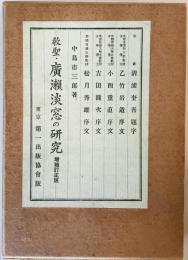 清浦奎吾題字
乙竹岩造序文
小西重直序文
吉田熊次序文
松月秀雄序文
中島市三郎著
教聖・廣瀬淡窓の研究 増補訂正版
東京 第一出版協會版